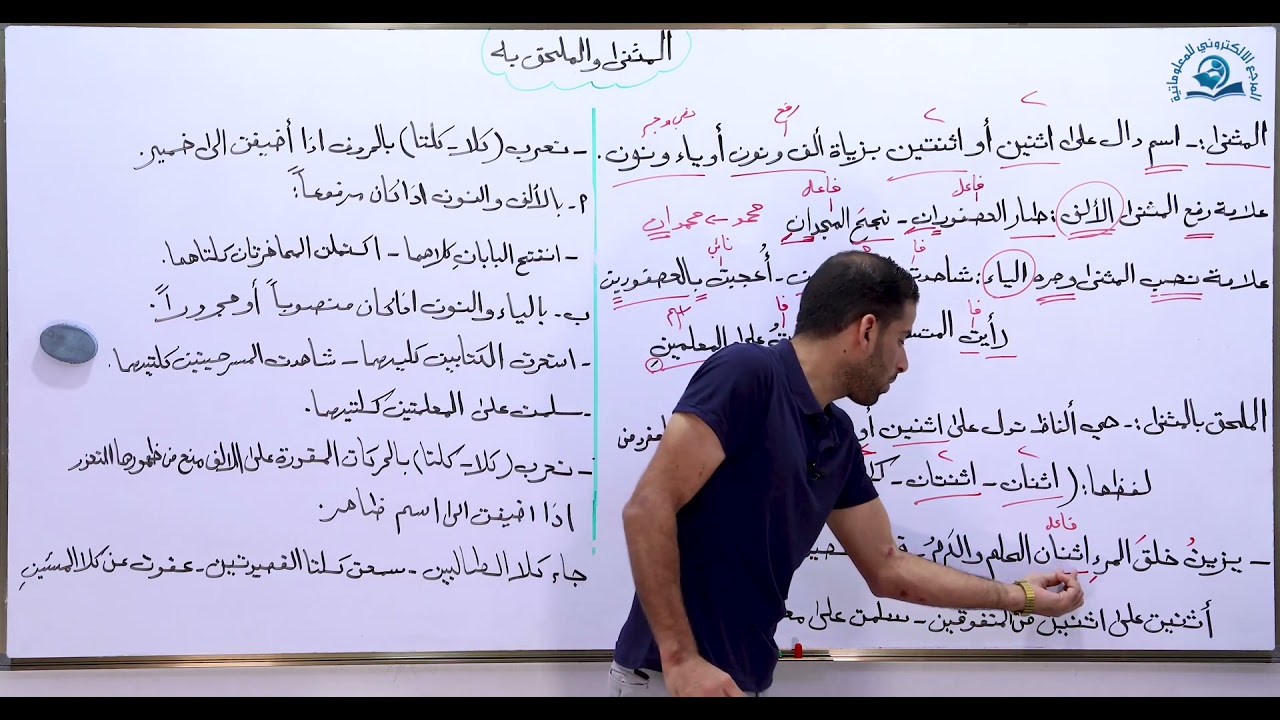 المثنى والملحق به
المرجع الالكتروني للمعلوماتية
نصب وجر
رفع
المثنى:- اسم دال على اثنين أو اثنتين بزياة ألف ونون أو ياء ونون.
فاعل
فاعل
علامة رفع المثنى الألف: طار العصفوران - نجح المجدان
محمد ← محمدان
فا
علامة نصب المثنى وجره الياء: شاهدت - أعجبت بالعصفورين
فا
فا
رأيت على المعلمين
الملحق بالمثنى:- هي ألفاظ تدل على اثنين
لفظها: (اثنان - اثنتان -
فاعل
- يزينُ خلقَ المرءِ اثنان الحلم والكرمُ -
أثنيت على اثنين من المتفوقين - سلمت على
- تعرب (كلا - كلتا) بالحروف اذا أضيفت الى ضمير.
أ- بالألف والنون اذا كان مرفوعاً:
- انفتح البابانِ كلاهما - اكتملت المحاضرتان كلتاهما.
ب- بالياء والنون اذا كان منصوباً أو مجروراً.
- استعرت الكتابين كليهما - شاهدت المسرحيتين كلتيهما.
- سلمت على المعلمتين كلتيهما.
- تعرب (كلا - كلتا) بالحركات المقدرة على الالف منع من ظهورها التعذر
اذا اضيفت الى اسم ظاهر.
جاء كلا الطالبين - سمعت كلتا القصيدتين - عفوت عن كلا المسيئين